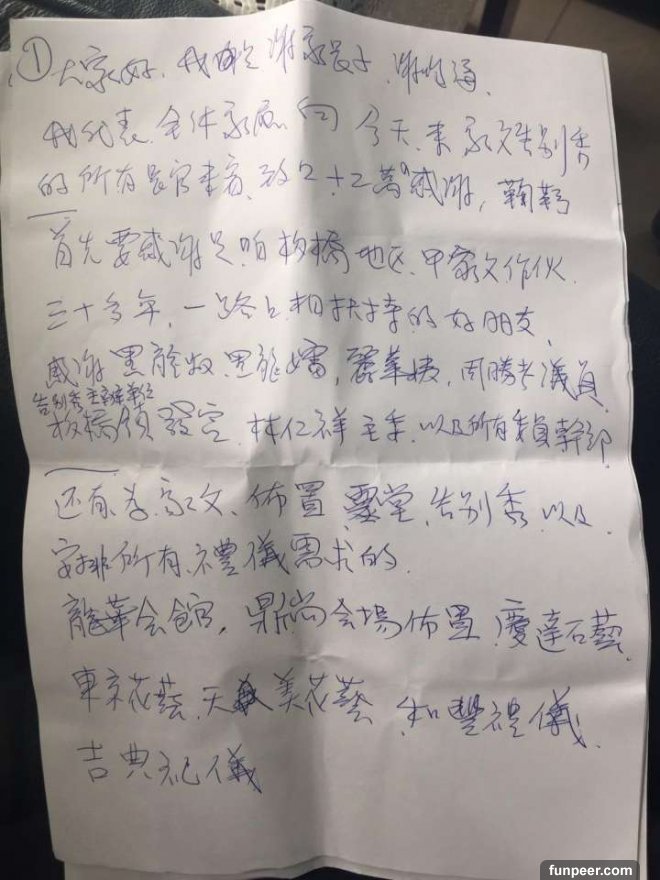 ①
大家好,我是謝家長子,謝
我代表全体家屬向今天來家父告別秀
的所有長官來賓,致上十二萬感謝,鞠躬
首先要感謝是咱板橋地区甲家父作伙
三十多年,一路上相扶持的好朋友,
感謝黑龍叔,黑龍嬸,麗華姨,周勝考議員,
告別秀主辦單位
板橋 宮,林仁祥主委,以及所有委員幹部,
还有為家父、佈置靈堂,告別秀,以及
安排所有禮儀需求的,
龍華会館,鼎尚会場佈置,慶達石藝,
東京花藝,天 美花藝,和豐禮儀,
吉典礼儀
funpeer.com